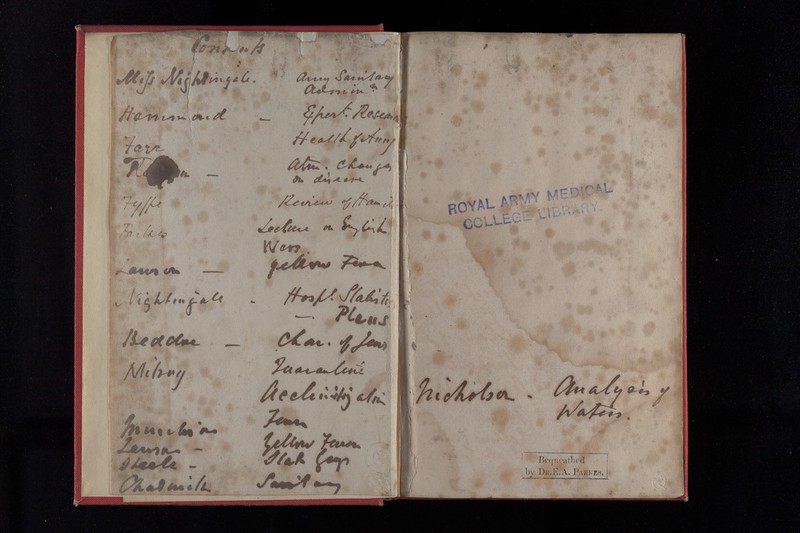 Contents
Miss Nightingale. Army Sanitary
Admin n
Hammond — Expert. Resear
Farr Health of Army
— Atm. Changes
on disease
Fyffe Review of
Parkes Lecture on English
Wars
Lawson — Yellow Fever
Nightingale - Hospl. Statist
— Plans
Beddoe — Char. of Jews
Milroy Quarantine
Acclimitization
Fever
Lawson - Yellow Fever
Steele -
Chadwick Sanitary
ROYAL ARMY MEDICAL
COLLEGE LIBRARY.
Nicholson - Analysis of
Waters.
Bequeathed
by Dr. E. A. PARKES.